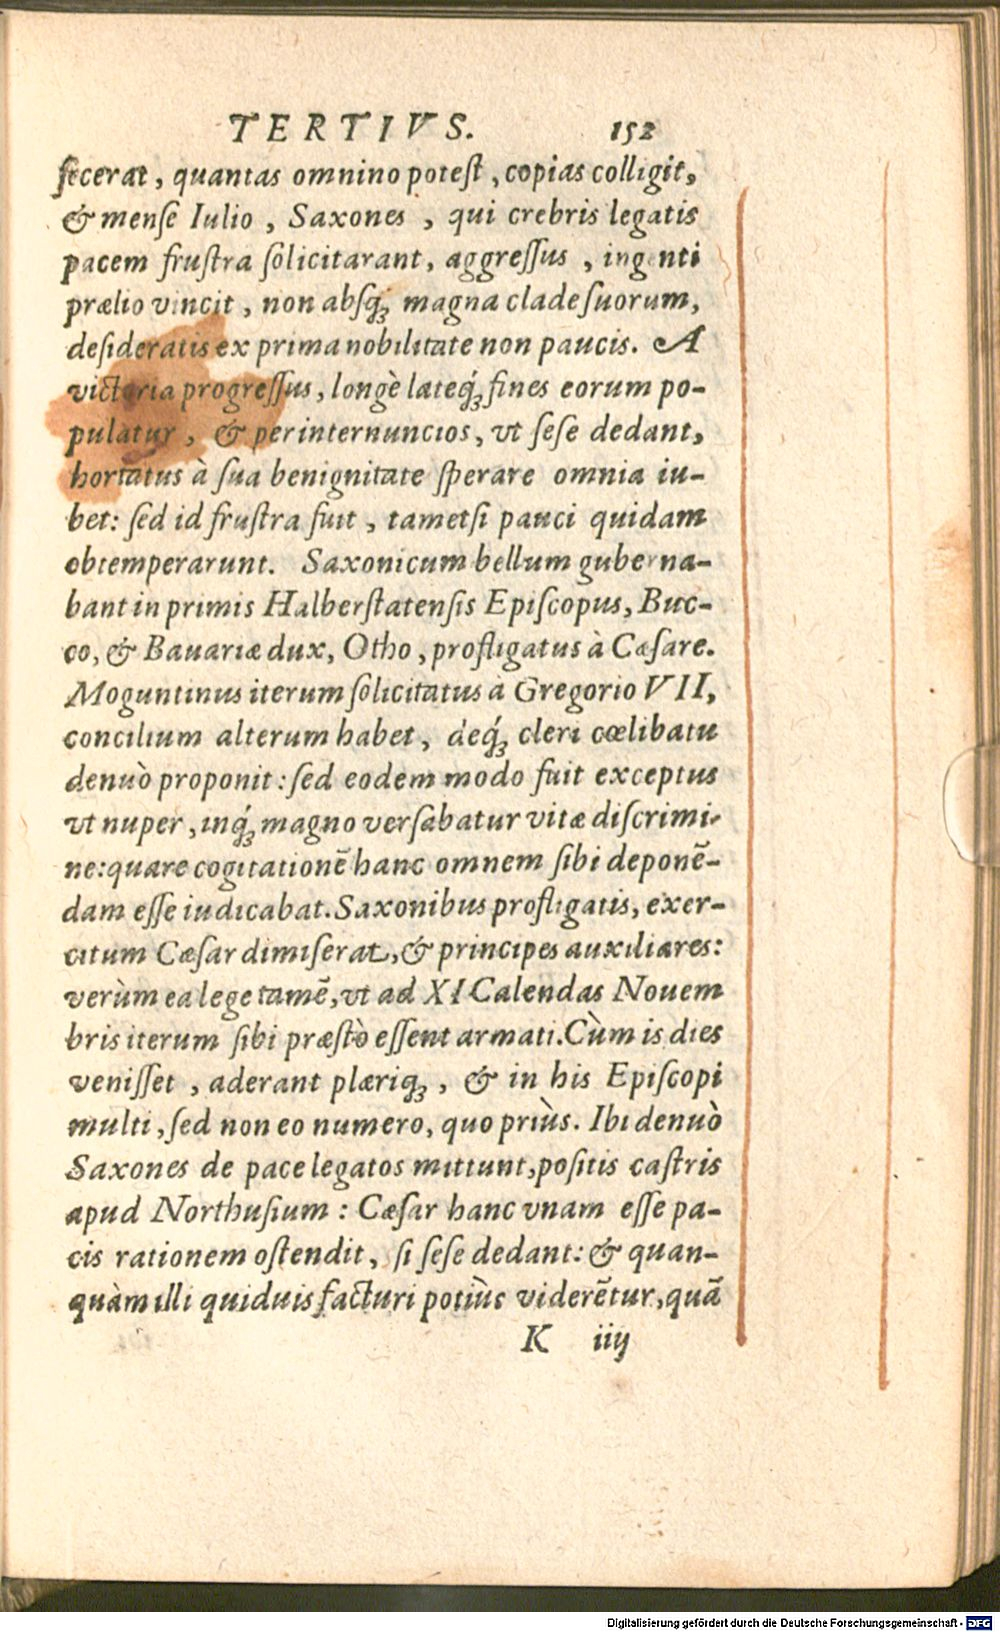 TERTIVS. 152
fecerat, quantas omnino potest, copias colligit,
& mense Iulio, Saxones, qui crebris legatis
pacem frustra solicitarant, aggressus, ingenti
prælio vincit, non absq; magna clade suorum,
desideratis ex prima nobilitate non paucis. A
victoria progressus, longè lateq́; fines eorum po-
pulatur, & per internuncios, vt sese dedant,
hortatus à sua benignitate sperare omnia iu-
bet: sed id frustra fuit, tametsi pauci quidam
obtemperarunt. Saxonicum bellum guberna-
bant in primis Halberstatensis Episcopus, Buc-
co, & Bauariæ dux, Otho, profligatus à Cæsare.
Moguntinus iterum solicitatus à Gregorio VII,
concilium alterum habet, deq́; cleri cœlibatu
denuò proponit: sed eodem modo fuit exceptus
vt nuper, inq́; magno versabatur vitæ discrimi-
ne: quare cogitationē hanc omnem sibi deponē-
dam esse iudicabat. Saxonibus profligatis, exer-
citum Cæsar dimiserat, & principes auxiliares:
verùm ea lege tamē, vt ad XI Calendas Nouem
bris iterum sibi præstò essent armati. Cùm is dies
venisset, aderant plæriq;, & in his Episcopi
multi, sed non eo numero, quo priùs. Ibi denuò
Saxones de pace legatos mittunt, positis castris
apud Northusium: Cæsar hanc vnam esse pa-
cis rationem ostendit, si sese dedant: & quan-
quàm illi quiduis facturi potiùs viderētur, quā
K iiij
Digitalisierung gefördert durch die Deutsche Forschungsgemeinschaft - DFG